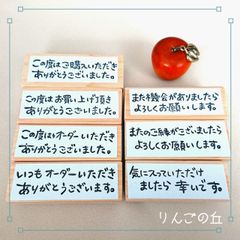 この度はご購入いただき
ありがとうございました。
この度はお買い上げ頂き
ありがとうございました。
この度はオーダーいただき
ありがとうございました。
いつもオーダーいただき
ありがとうございます。
また機会がありましたら
よろしくお願いします。
またのご縁がございましたら
よろしくお願いします。
気に入っていただけ
ましたら幸いです。
りんごの丘